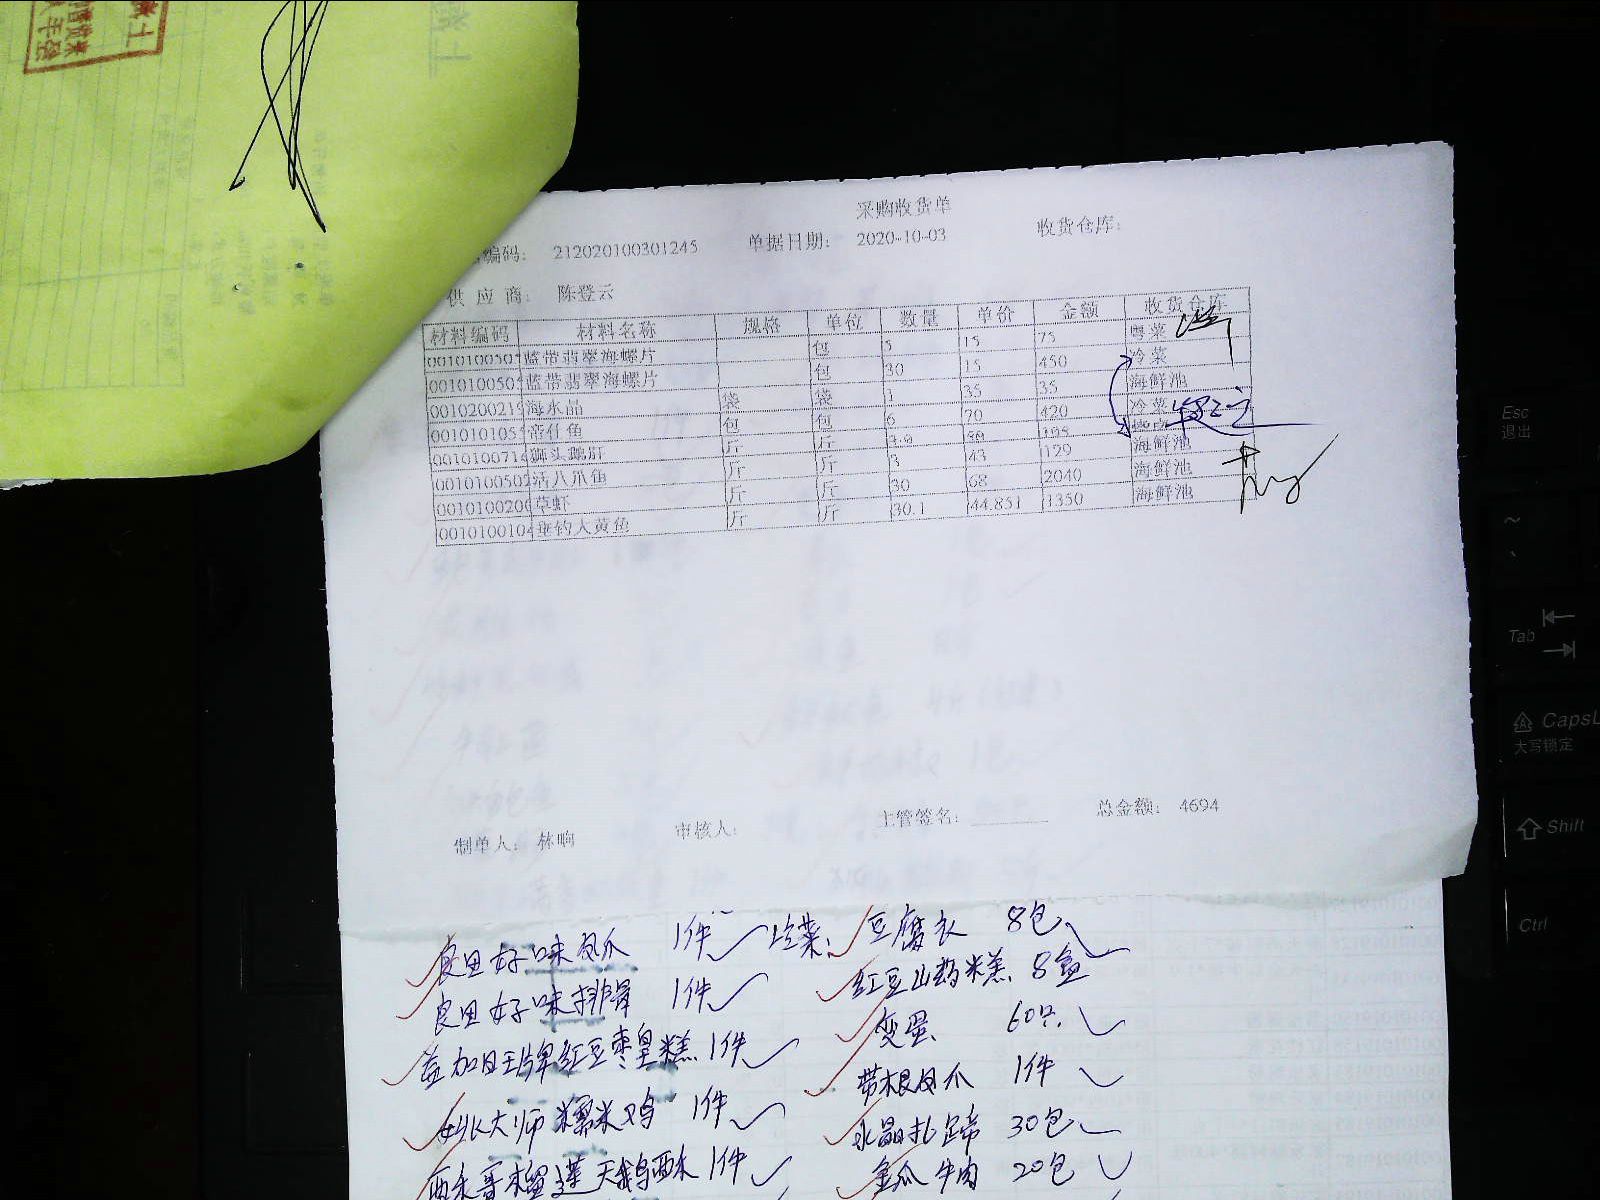 采购收货单
编码： 212020100301245 单据日期： 2020-10-03 收货仓库：
供 应 商： 陈登云
材料编码 材料名称 规格 单位 数量 单价 金额 收货仓库
0010100505 蓝带翡翠海螺片 包 5 15 75 粤菜
0010100505 蓝带翡翠海螺片 包 30 15 450 冷菜
0010200219 海水晶 袋 袋 1 35 35 海鲜池
0010101055 帝仕鱼 包 包 6 70 420 冷菜
001010071 狮头鹅肝 斤 斤
0010100502 活八爪鱼 斤 斤 3 43 129 海鲜池
0010100200 草虾 斤 斤 30 68 2040 海鲜池
0010100104 垂钓大黄鱼 斤 斤 30.1 44.851 1350 海鲜池
制单人： 林响 审核人： 主管签名： 总金额： 4694
良田好味凤爪 1件 冷菜： 豆腐衣 8包
良田好味排骨 1件 红豆山药糕 8盒
益加日王牌红豆枣皇糕 1件 变蛋 60只
大师糯米鸡 1件 带根凤爪 1件
水晶扎蹄 30包
榴莲天鹅酥 1件 金瓜牛肉 20包
Esc
退出
Tab
CapsL
大写锁定
Shift
Ctrl